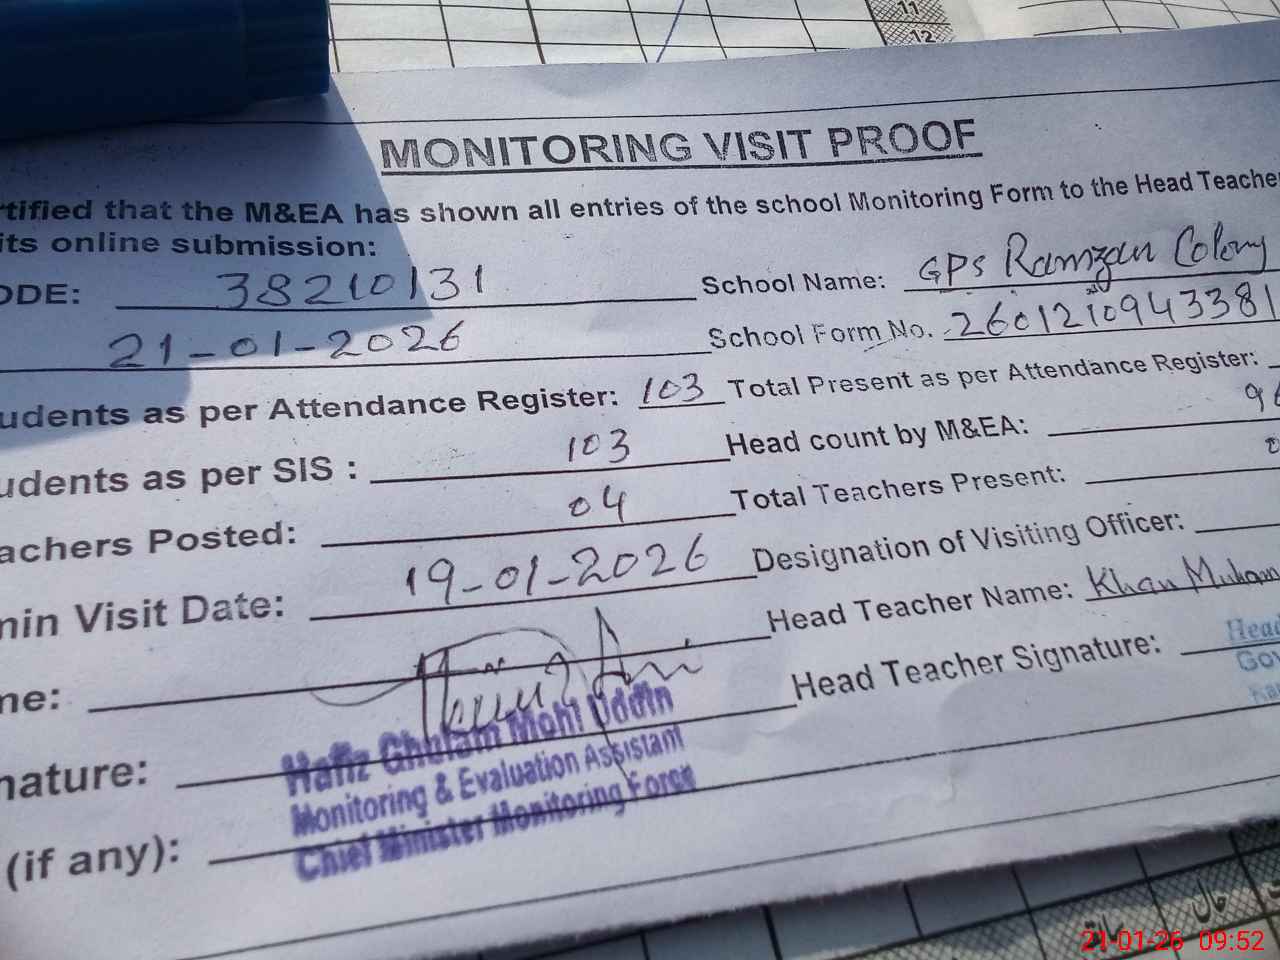 11
12
MONITORING VISIT PROOF
rtified that the M&EA has shown all entries of the school Monitoring Form to the Head Teacher
its online submission:
ODE: 38210131 School Name: GPS Ramzan Colony
21-01-2026 School Form No. 2601210943381
udents as per Attendance Register: 103 Total Present as per Attendance Register:
udents as per SIS : 103 Head count by M&EA: 96
achers Posted: 04 Total Teachers Present:
min Visit Date: 19-01-2026 Designation of Visiting Officer:
me: Head Teacher Name: Khan Muham
nature: Head Teacher Signature:
Head
Gov
Hafiz Ghulam Mohi Uddin
Monitoring & Evaluation Assistant
Chief Minister Monitoring Force
(if any):
حال
21-01-26 09:52